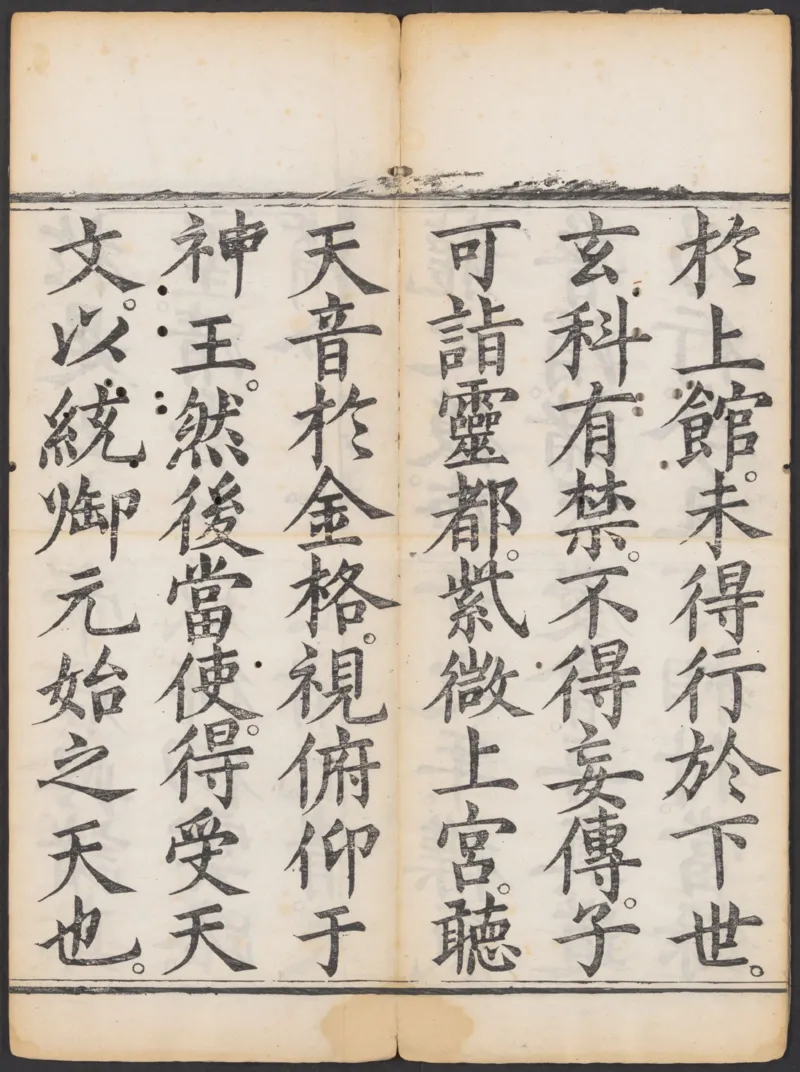 於上館。未得行於下世。
玄科有禁。不得妄傳。子
可詣靈都。紫微上宮。聽
天音於金格。視俯仰于
神王。然後當使。得受天
文。以統御元始之天也。